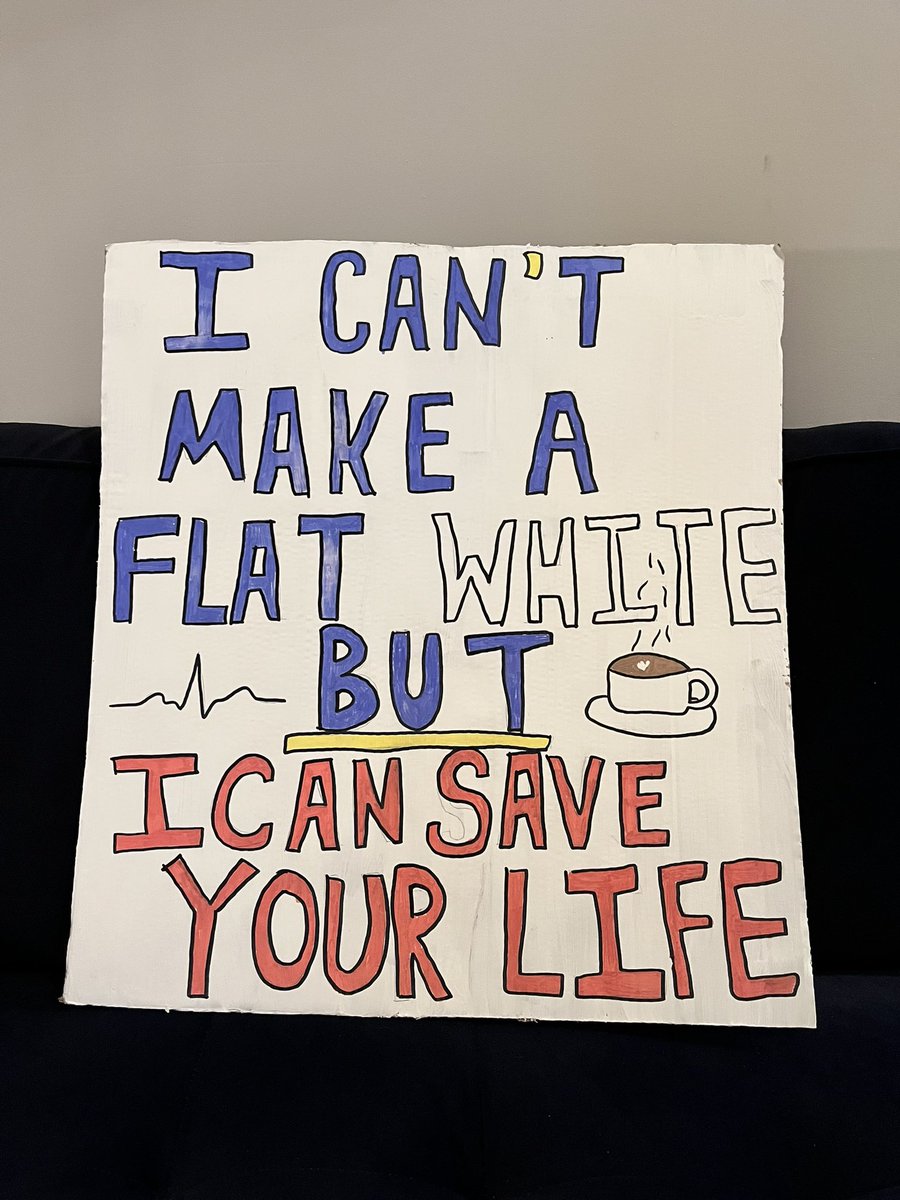 I CAN'T
MAKE A
FLAT WHITE
BUT
I CAN SAVE
YOUR LIFE